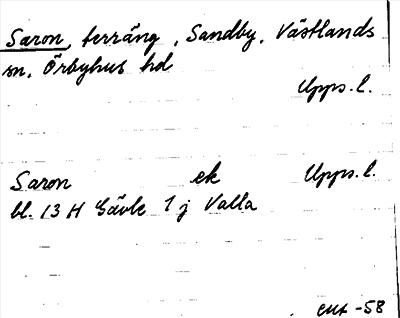 Saron, terräng, Sandby, Västlands
sn, Örbyhus hd
Upps. l.
Saron ek Upps. l.
bl. 13 H Gävle 1 j Valla
-58